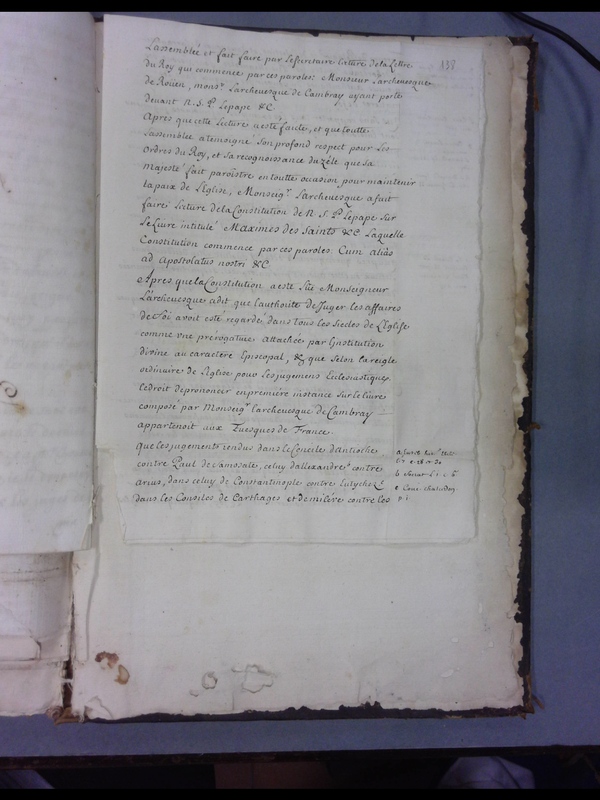 138
Lassembleé et fait faire par le secretaire Lecture de la Lettre
du Roy qui commence par ces paroles: Monsieur Larchevesque
de Rouen, mons.r Larchevesque de Cambray ayant porté
devant N. S. P. Lepape &c
Apres que cette Lecture a esté faicte, et que toutte
Lassembleé a temoigné son profond respect pour Les
ordres du Roy, et sa recognoissance du zele que sa
Majesté fait paroistre en toutte occasion pour maintenir
la paix de L'Eglise, Monseig.r Larchevesque a fait
faire Lecture de la Constitution de N. S. P. Lepape sur
Le Livre intitulé Maximes des Saints &c Laquelle
Constitution commence par ces paroles: Cum aliàs
ad Apostolatus nostri &c
Apres que la Constitution a esté Lüe Monseigneur
Larchevesque a dit que l'authorité de Juger les affaires
de foi avoit esté regardé dans tous les siecles de L'Eglise
comme une prerogative attachée par Institution
divine au caractere Episcopal, & que selon la reigle
ordinaire de L'Eglise pour les jugemens Ecclesiastiques
le droit de prononcer en premiere instance sur le livre
composé par Monseig.r larchevesque de Cambray
appartenoit aux Evesques de France.
que les jugements rendus dans le Concile d'antioche
contre Paul de Samosate, celuy d'allexandre contre
arius, dans celuy de Constantinople contre Eutyches
dans les Conciles de Carthages et de miléve contre les
L. 7 c. 28
b
c Conc. chalcedon
p. 1